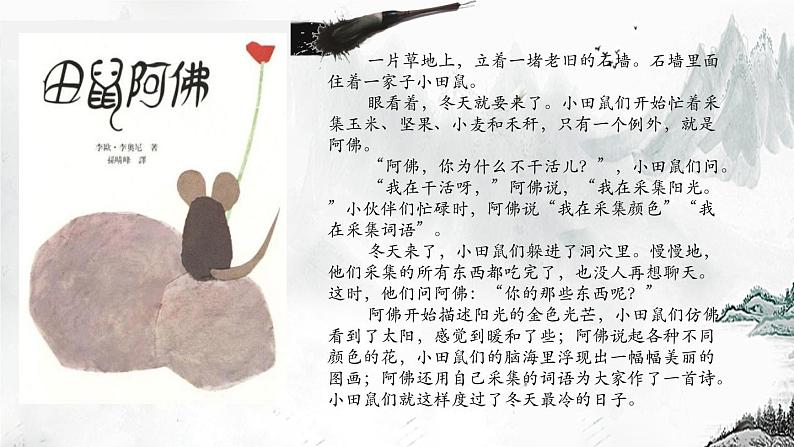 田鼠阿佛
李歐·李奧尼 著
孫晴峰 譯
一片草地上，立着一堵老旧的石墙。石墙里面
住着一家子小田鼠。
眼看着，冬天就要来了。小田鼠们开始忙着采
集玉米、坚果、小麦和禾秆，只有一个例外，就是
阿佛。
“阿佛，你为什么不干活儿？”，小田鼠们问。
“我在干活呀，”阿佛说，“我在采集阳光。
”小伙伴们忙碌时，阿佛说“我在采集颜色”“我
在采集词语”。
冬天来了，小田鼠们躲进了洞穴里。慢慢地，
他们采集的所有东西都吃完了，也没人再想聊天。
这时，他们问阿佛：“你的那些东西呢？”
阿佛开始描述阳光的金色光芒，小田鼠们仿佛
看到了太阳，感觉到暖和了些；阿佛说起各种不同
颜色的花，小田鼠们的脑海里浮现出一幅幅美丽的
图画；阿佛还用自己采集的词语为大家作了一首诗。
小田鼠们就这样度过了冬天最冷的日子。